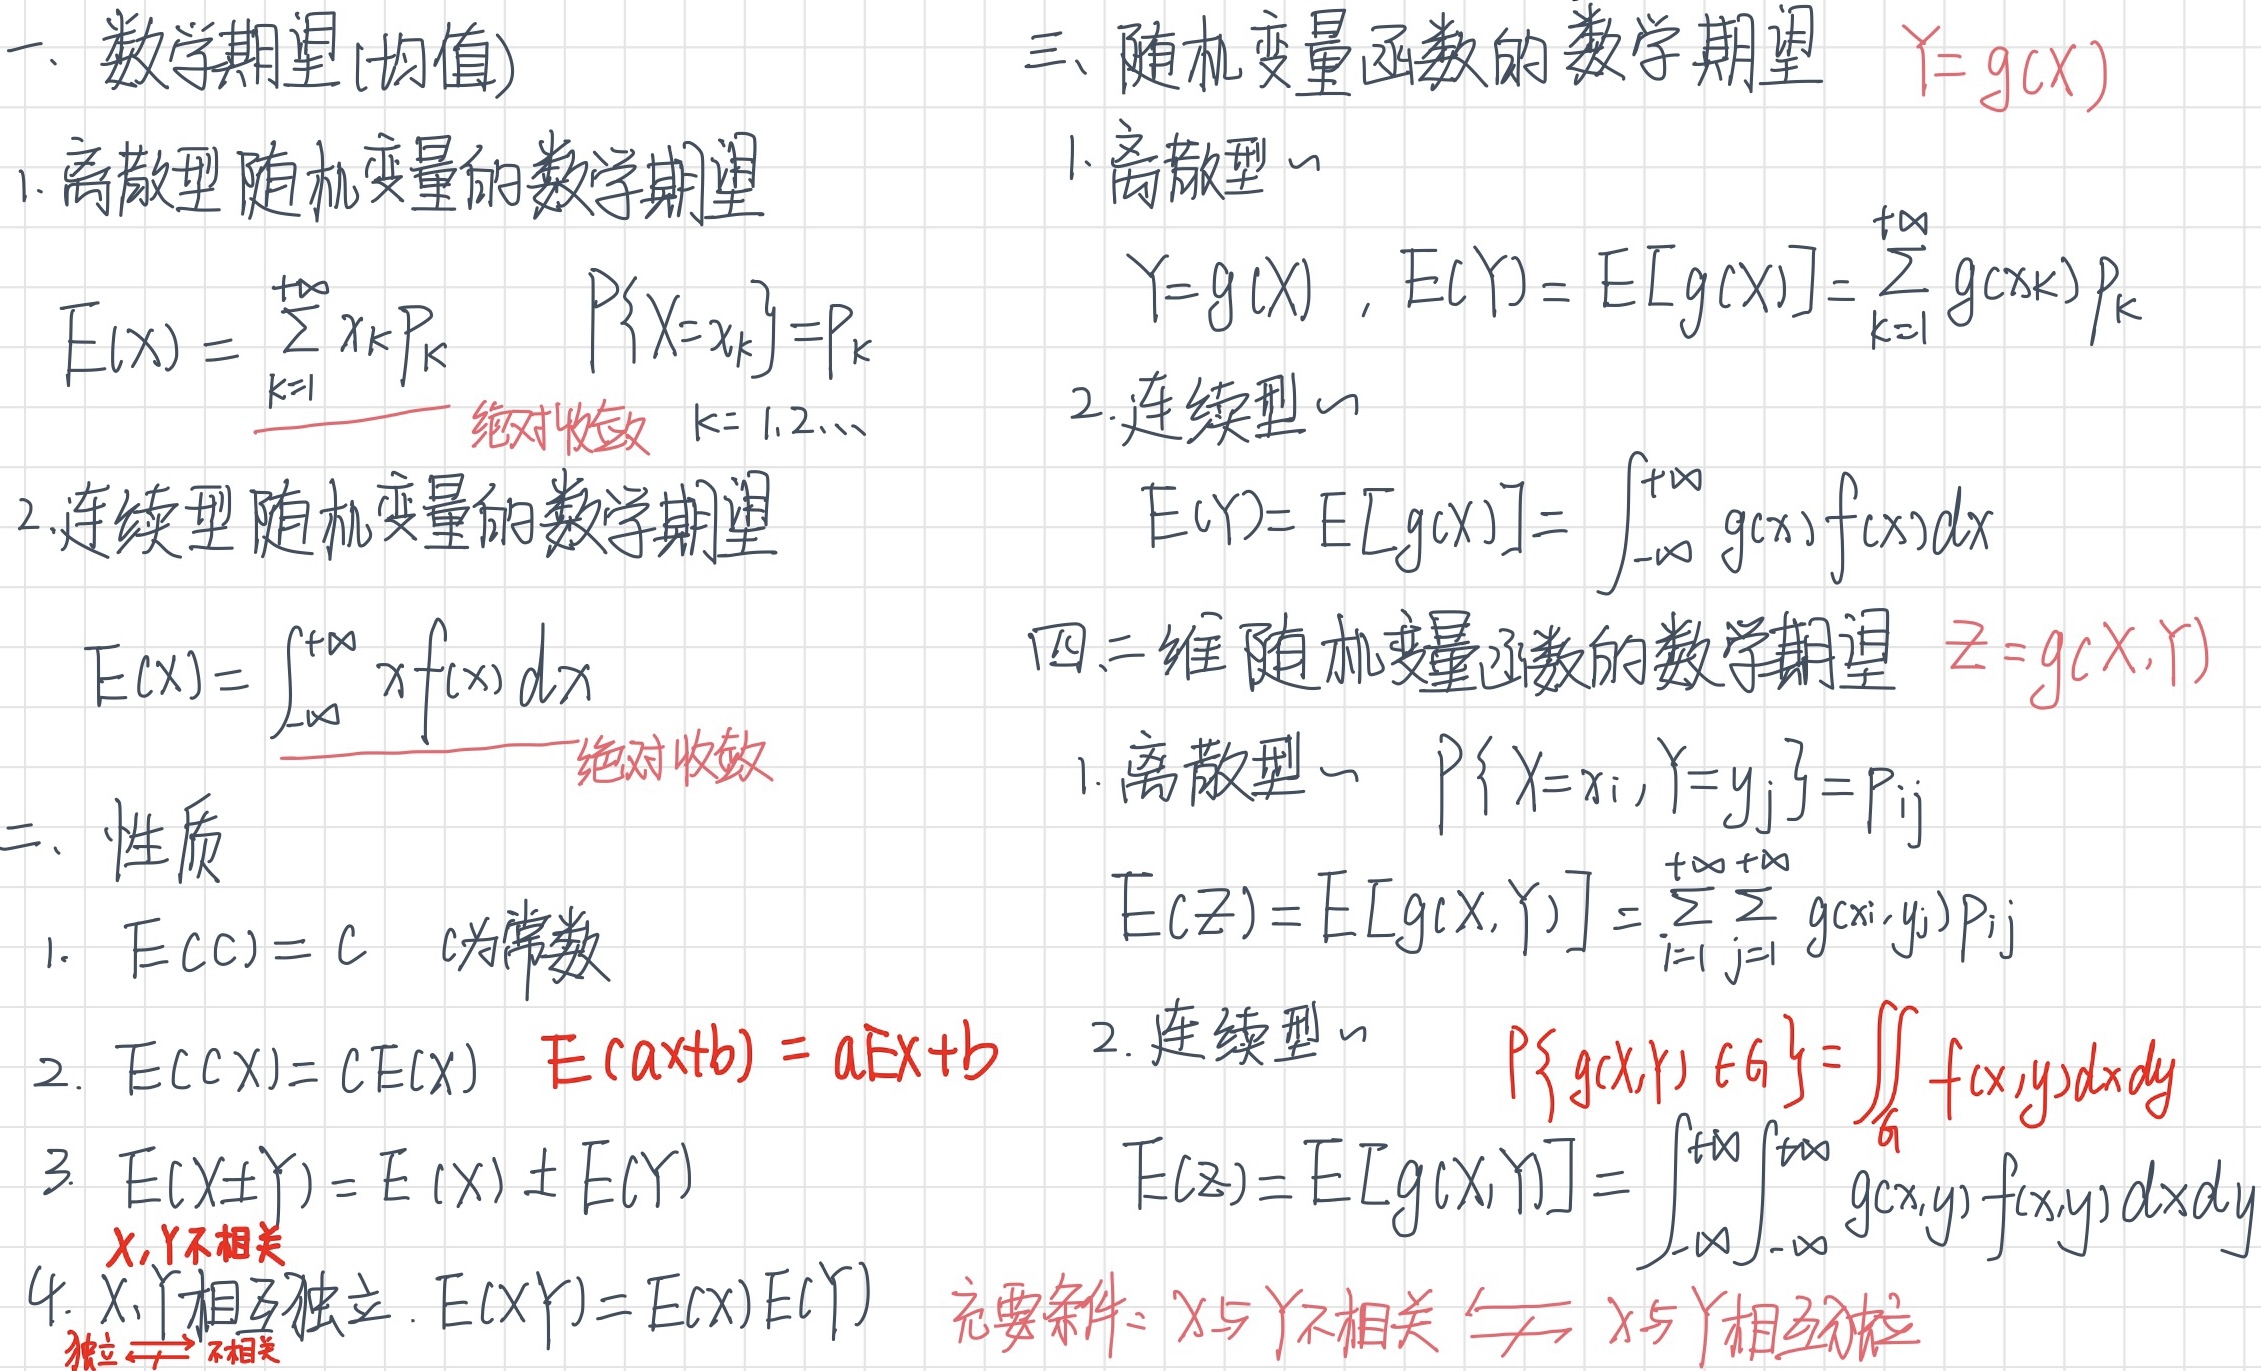 一、数学期望(均值)
1. 离散型随机变量的数学期望
E(X) = ∑_{k=1}^{+∞} x_k p_k    P{X=x_k}=p_k
绝对收敛    k=1.2...
2. 连续型随机变量的数学期望
E(X) = ∫_{-∞}^{+∞} x f(x) dx
绝对收敛
二、性质
1. E(C) = C    C为常数
2. E(CX) = CE(X)    E(ax+b) = aEX+b
3. E(X±Y) = E(X) ± E(Y)
X,Y不相关
4. X,Y相互独立. E(XY) = E(X)E(Y)
独立 ⇄̸ 不相关
三、随机变量函数的数学期望    Y=g(X)
1. 离散型~
Y=g(X), E(Y) = E[g(X)] = ∑_{k=1}^{+∞} g(x_k) p_k
2. 连续型~
E(Y) = E[g(X)] = ∫_{-∞}^{+∞} g(x) f(x) dx
四、二维随机变量函数的数学期望    Z=g(X,Y)
1. 离散型~    P{X=x_i, Y=y_j} = p_{ij}
E(Z) = E[g(X,Y)] = ∑_{i=1}^{+∞} ∑_{j=1}^{+∞} g(x_i,y_j) p_{ij}
2. 连续型~    P{g(X,Y)∈G} = ∬_G f(x,y) dxdy
E(Z) = E[g(X,Y)] = ∫_{-∞}^{+∞} ∫_{-∞}^{+∞} g(x,y) f(x,y) dxdy
充要条件: X与Y不相关 ⇄̸ X与Y相互独立